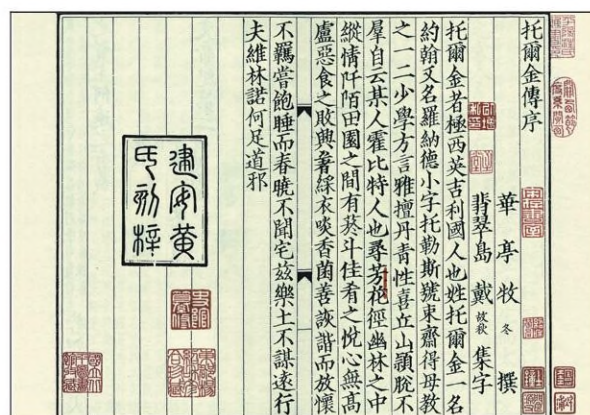 托爾金傳序
華亭牧冬撰
翡翠島戴故秋集字
托爾金者極西英吉利國人也姓托爾金一名
約翰又名羅納德小字托勒斯號東齋得母教
之一二少學方言雅擅丹青性喜丘山頴脫不
羣自云某人霍比特人也尋芳花徑幽林之中
縱情阡陌田園之間有菸斗佳肴之悅心無高
盧惡食之敗興著綵衣啖香菌善詼諧而放懷
不羈嘗飽睡而春曉不聞宅茲樂土不謀遠行
夫維林諾何足道邪
建安黃
氏刻梓